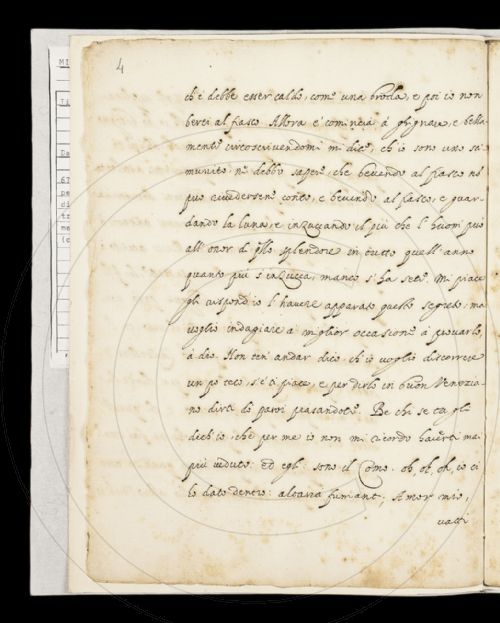 4
ch'è debbe esser caldo, come una broda, e poi io non
bevei al fiasco. Allora e' comincia à ghignare, e bella
mente circoscrivendomi mi dice, ch'io sono uno
munito, ne debbo sapere, che bevendo al fiasco nō
può rivedersene conto, e bevendo al fiasco, e guar-
dando la luna, e inzuccando il più che l'huom può
all'onor di quello splendore in tutto quell'anno
quanto più s'inzucca, manco s'ha sete. Mi piace
gli rispond'io l'havere apparato questo segreto, ma
voglio indagiare à miglior occasione à provarlo,
à dio. Non ten'andar dico ch'io voglio discorrere
un po teco, s'è ti piace, e per dirlo in buon Venezia-
no dirti dò parole Be chi se tu gli
dich'io, chè per me io non mi ricordo haverti mai
più veduto. Ed egli: sono il Como. oh, oh, oh, io ci
lo dato dentro: altaria fumant, Amor mio,
vatti
MI
TI